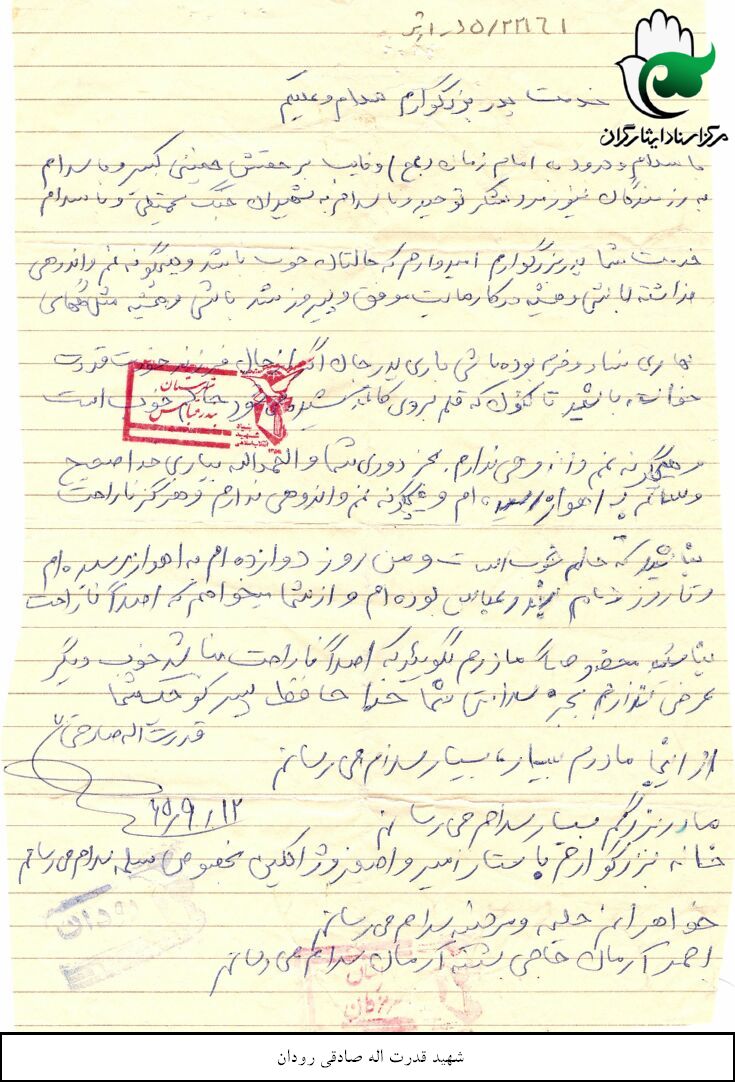 ۵/۲۲۱۶۱/در/ایثر
مرکز اسناد ایثارگران
خدمت پدر بزرگوارم سلام و علیکم
با سلام و درود به امام زمان (عج) و نایب بر حقش خمینی کبیر و با سلام
به رزمندگان لشکر توحید و با سلام به شهیدان جنگ تحمیلی و با سلام
خدمت شما پدر بزرگوارم امیدوارم که حالتان خوب باشد و هیچگونه غم و اندوهی
نداشته باشی و همیشه در کارهایت موفق و پیروز شد باشی و همیشه مثل گلهای
بهاری شاد و خرم بوده باشی باری پدر جان اگر از حال فرزند خود قدرت
خواسته باشید تا کنون که قلم بروی کاغذ خوب است
و هیچگونه غم و اندوهی ندارم بجز دوری شما و الحمدالله بیاری خدا صحیح
و سالم به اهواز رسیده ام و هیچگونه غم و اندوهی ندارم و هرگز ناراحت
نباشید که حالم خوب است و من روز دوازده ام به اهواز رسیده ام
و تا روز بندرعباس بوده ام و از شما میخواهم که اصلاً ناراحت
نباشید مخصوصاً مادرم بگوئید که اصلاً ناراحت نباشد خوب دیگر
عرضی ندارم بجز سلامتی شما خدا حافظ پسر کوچک شما
قدرت اله صادقی
از اینجا مادرم بسیار بسیار سلام می رسانم
۶۵/۹/۱۲
مادر بزرگم بسیار سلام می رسانم
خانه بزرگوارم با ستار امیر و اصغر و بخصوص سلام می رسانم
خواهرانم حلیمه و مرضیه سلام می رسانم
احمد آرمان حاجی آرمان سلام می رسانم
بندرعباس
رودان
شهید قدرت اله صادقی رودان